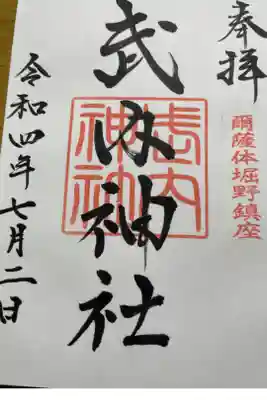 奉拝
爾薩体堀野鎮座
武内神社
武内神社
令和四年七月二日